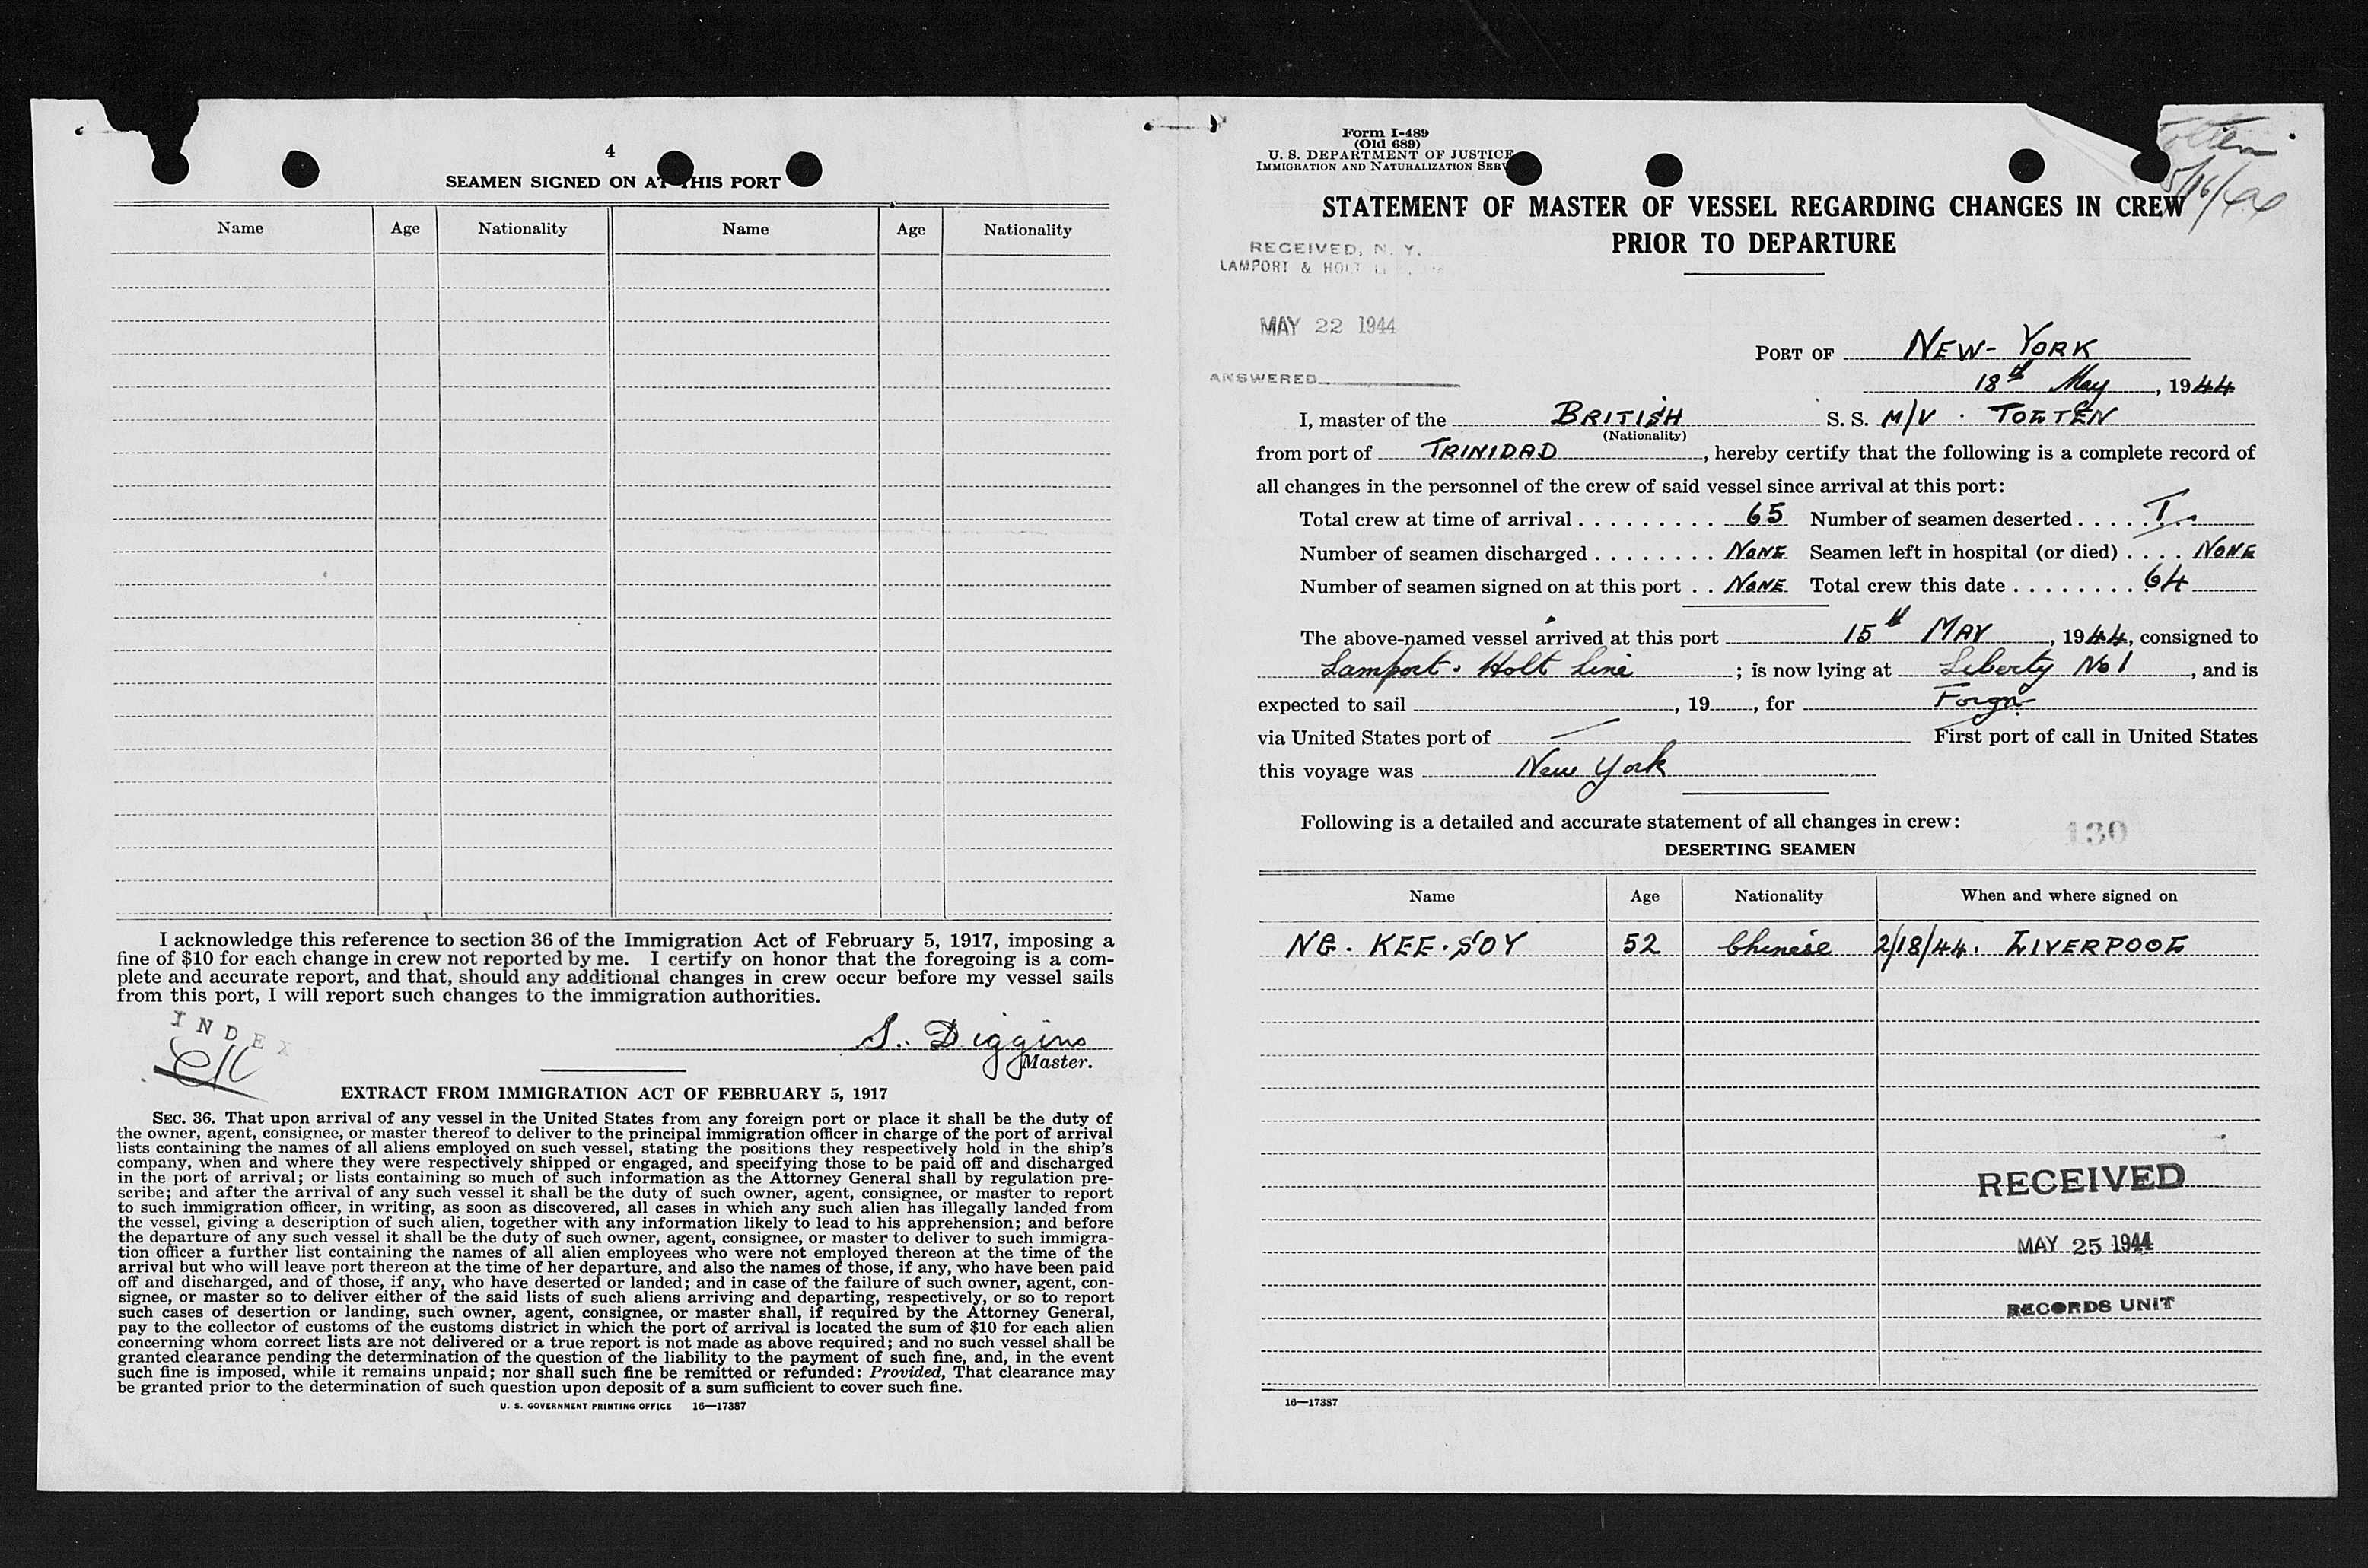 4
SEAMEN SIGNED ON AT THIS PORT
Name Age Nationality Name Age Nationality
I acknowledge this reference to section 36 of the Immigration Act of February 5, 1917, imposing a
fine of $10 for each change in crew not reported by me. I certify on honor that the foregoing is a com-
plete and accurate report, and that, should any additional changes in crew occur before my vessel sails
from this port, I will report such changes to the immigration authorities.
INDEX
S. Diggins
Master.
EXTRACT FROM IMMIGRATION ACT OF FEBRUARY 5, 1917
SEC. 36. That upon arrival of any vessel in the United States from any foreign port or place it shall be the duty of
the owner, agent, consignee, or master thereof to deliver to the principal immigration officer in charge of the port of arrival
lists containing the names of all aliens employed on such vessel, stating the positions they respectively hold in the ship's
company, when and where they were respectively shipped or engaged, and specifying those to be paid off and discharged
in the port of arrival; or lists containing so much of such information as the Attorney General shall by regulation pre-
scribe; and after the arrival of any such vessel it shall be the duty of such owner, agent, consignee, or master to report
to such immigration officer, in writing, as soon as discovered, all cases in which any such alien has illegally landed from
the vessel, giving a description of such alien, together with any information likely to lead to his apprehension; and before
the departure of any such vessel it shall be the duty of such owner, agent, consignee, or master to deliver to such immigra-
tion officer a further list containing the names of all alien employees who were not employed thereon at the time of the
arrival but who will leave port thereon at the time of her departure, and also the names of those, if any, who have been paid
off and discharged, and of those, if any, who have deserted or landed; and in case of the failure of such owner, agent, con-
signee, or master so to deliver either of the said lists of such aliens arriving and departing, respectively, or so to report
such cases of desertion or landing, such owner, agent, consignee, or master shall, if required by the Attorney General,
pay to the collector of customs of the customs district in which the port of arrival is located the sum of $10 for each alien
concerning whom correct lists are not delivered or a true report is not made as above required; and no such vessel shall be
granted clearance pending the determination of the question of the liability to the payment of such fine, and, in the event
such fine is imposed, while it remains unpaid; nor shall such fine be remitted or refunded: Provided, That clearance may
be granted prior to the determination of such question upon deposit of a sum sufficient to cover such fine.
U. S. GOVERNMENT PRINTING OFFICE 16—17387
Form I-489
(Old 689)
U. S. DEPARTMENT OF JUSTICE
IMMIGRATION AND NATURALIZATION SERV
5/16/44
STATEMENT OF MASTER OF VESSEL REGARDING CHANGES IN CREW
PRIOR TO DEPARTURE
RECEIVED, N. Y.
LAMPORT & HOLT
MAY 22 1944
ANSWERED
PORT OF NEW-YORK
18th May, 1944
I, master of the BRITISH S. S. M/V · TOLTEN
(Nationality)
from port of TRINIDAD, hereby certify that the following is a complete record of
all changes in the personnel of the crew of said vessel since arrival at this port:
Total crew at time of arrival . . . . . . . . . 65 Number of seamen deserted . . . . . 1.
Number of seamen discharged . . . . . . . . NONE Seamen left in hospital (or died) . . . . NONE
Number of seamen signed on at this port . . NONE Total crew this date . . . . . . . . . 64
The above-named vessel arrived at this port 15th MAY, 1944, consigned to
Lamport & Holt Line; is now lying at Liberty No 1, and is
expected to sail , 19 , for Forgn
via United States port of — First port of call in United States
this voyage was New York
Following is a detailed and accurate statement of all changes in crew:
130
DESERTING SEAMEN
Name Age Nationality When and where signed on
NG · KEE · SOY 52 Chinese 2/18/44. LIVERPOOL
RECEIVED
MAY 25 1944
RECORDS UNIT
16—17387